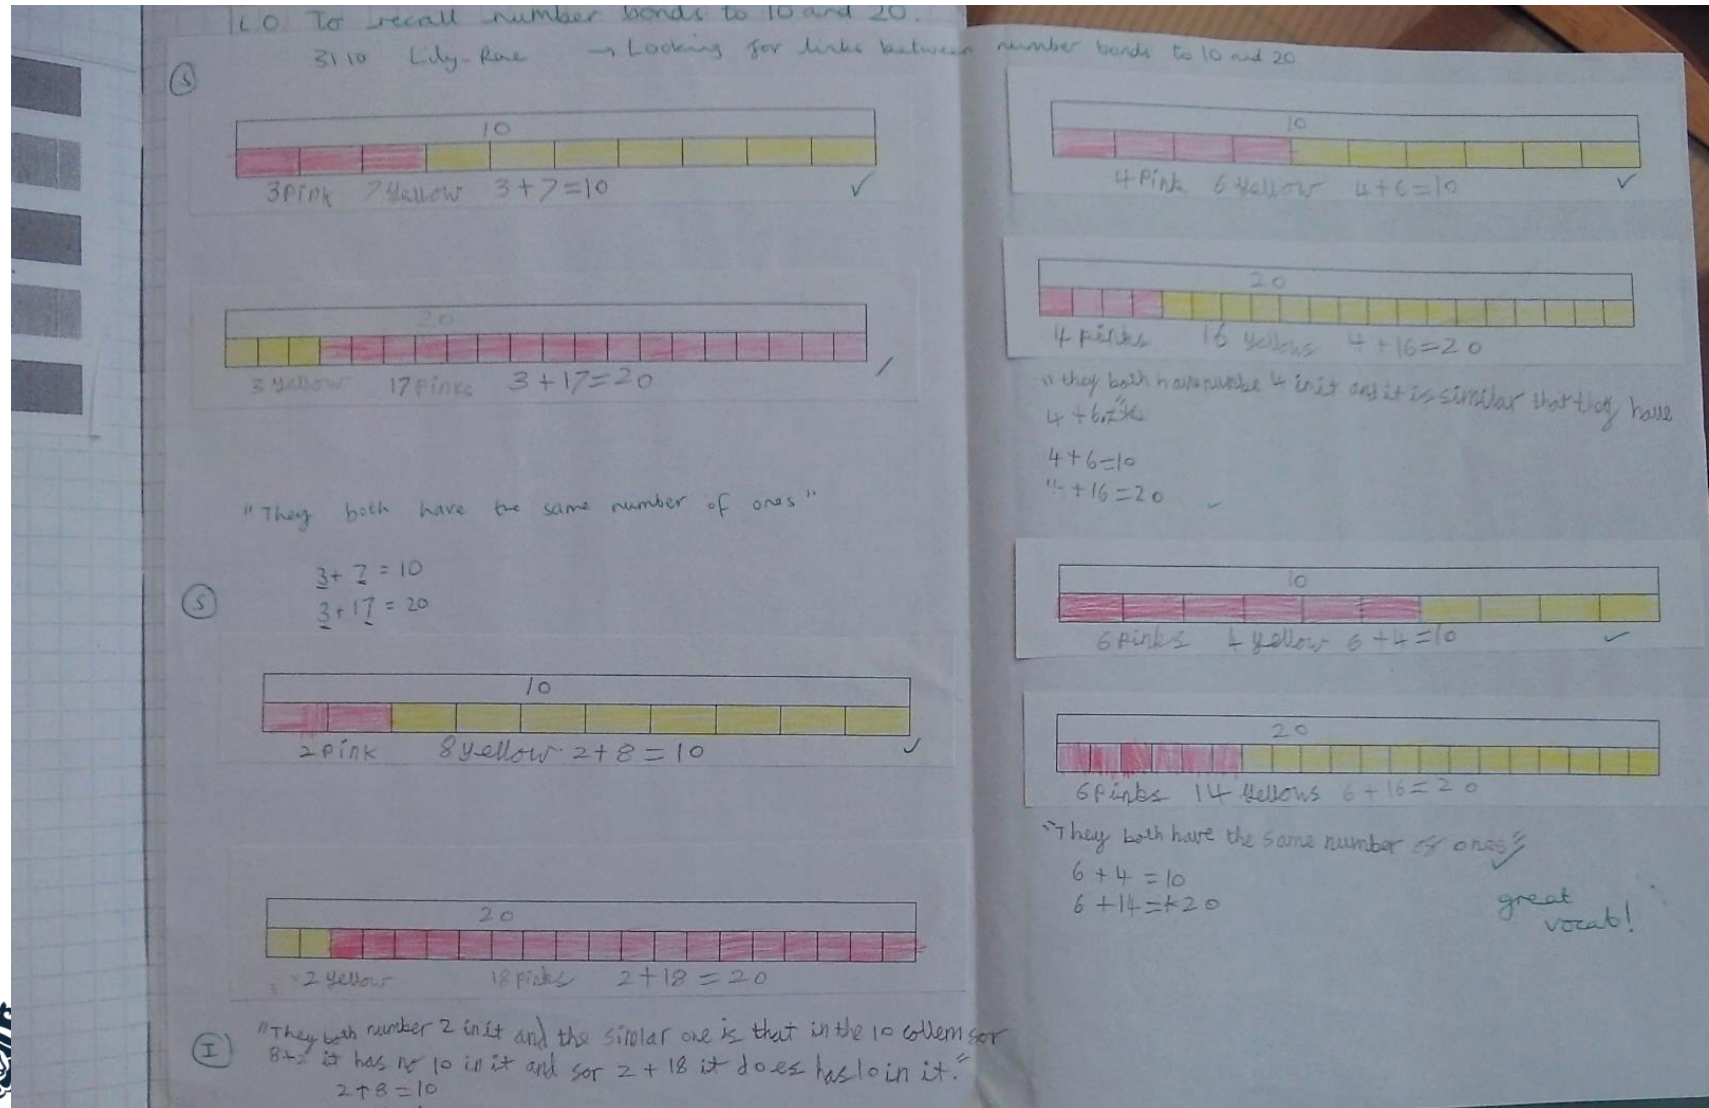 L.O. To recall number bonds to 10 and 20.
31 10 Lily-Rae → Looking for links between number bonds to 10 and 20
S
10
3 pink 7 yallow 3+7=10 ✓
20
3 yellow 17 pinks 3+17=20
"They both have the same number of ones"
3 + 7 = 10
3 + 17 = 20
S
10
2 pink 8 yellow 2+8=10 ✓
20
2 yellow 18 pinks 2+18=20
I
"They both number 2 in it and the similar one is that in the 10 collem sor
8+2 it has no 10 in it and sor 2+18 it does has 10 in it."
2+8=10
10
4 pink 6 yellow 4+6=10 ✓
20
4 pinks 16 yellows 4+16=20
"they both have numbe 4 in it and it is similar that they have
4+6
4+6=10
4+16=20 ✓
10
6 pinks 4 yellow 6+4=10 ✓
20
6 pinks 14 yellows 6+16=20
"They both have the same number of ones" ✓
6+4=10
6+14=20
great
vocab!